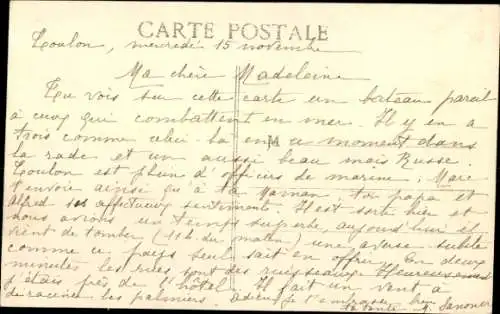 CARTE POSTALE
Toulon, mercredi 15 novembre
Ma chère Madeleine
Tu vois sur cette carte un bateau pareil
à ceux qui combattent en mer. Il y en a
trois comme celui là en ce moment dans
la rade et un aussi beau mais Russe.
Toulon est plein d'officiers de marine. Marc
t'envoie ainsi qu'à ta Maman, ton papa et
Alfred ses affectueux sentiments. Il est sorti hier et
nous avons un temps superbe, aujourd'hui il
vient de tomber (11h du matin) une averse subite
comme ce pays seul sait en offrir. En deux
minutes les rues sont des ruisseaux. Heureusement
j'étais près de l'hôtel. Il fait un vent à
déraciner les palmiers. Adieu je t'embrasse bien
ta tante